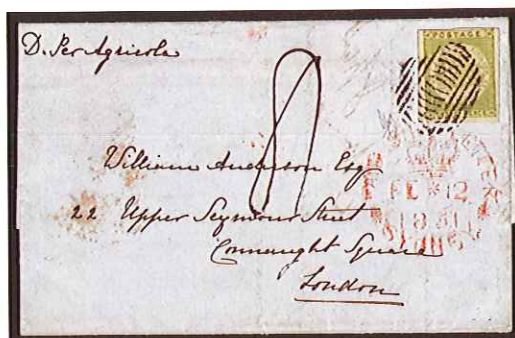 D. Per Agricola
POSTAGE
8
William Anderson Esq
22 Upper Seymour Street
Connaught Square
London
FE * 12
1851
SYDNEY